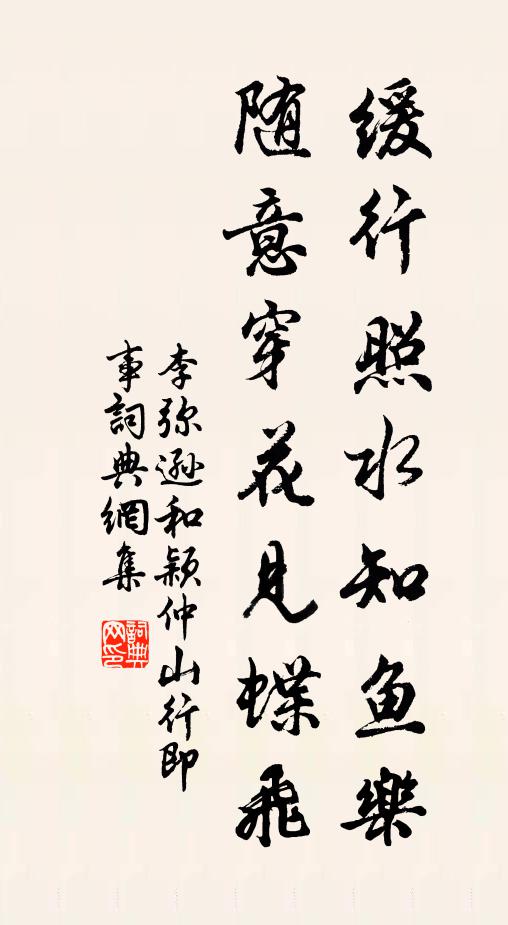 缓行照水知鱼樂
随意穿花見蝶飛
李弥遜和颖仲山行即
事詞典網集
詞典
网印